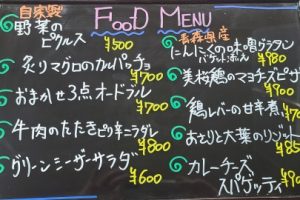 FOOD MENU
自家製
野菜の
ピクルス
¥500
炙りマグロのカルパッチョ
¥700
おまかせ3点オードブル
¥700
牛肉のたたきピリ辛ニラダレ
¥800
グリーンシーザーサラダ
¥600
青森県産
にんにくの味噌グラタン
バゲット
¥980
マヨチーズピザ
鶏レバーの甘辛煮
¥700
あさりと大葉のリゾット
カレーチーズ
スパゲッティ